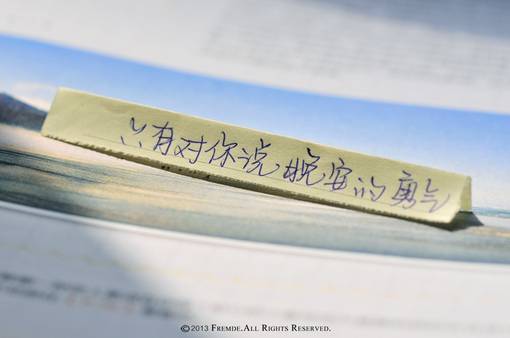 只有对你说晚安的勇气
©2013 FREMDE.ALL RIGHTS RESERVED.